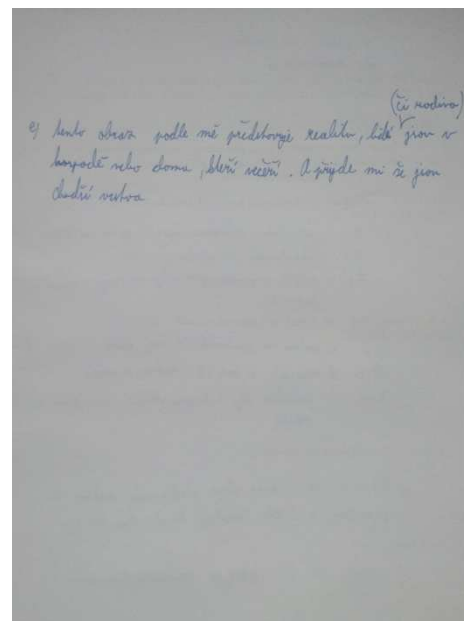 (či rodina)
e) tento obraz podle mě představuje realitu, lidé jsou v
hospodě nebo doma, kteří večeří. A přijde mi že jsou
chudší vrstva